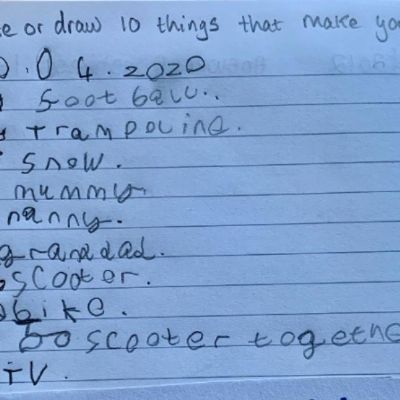 or draw 10 things that make
0.04.2020
foot ball..
trampoline.
snow.
mummy
nanny.
grandad.
scooter.
bike.
scooter together
TV.